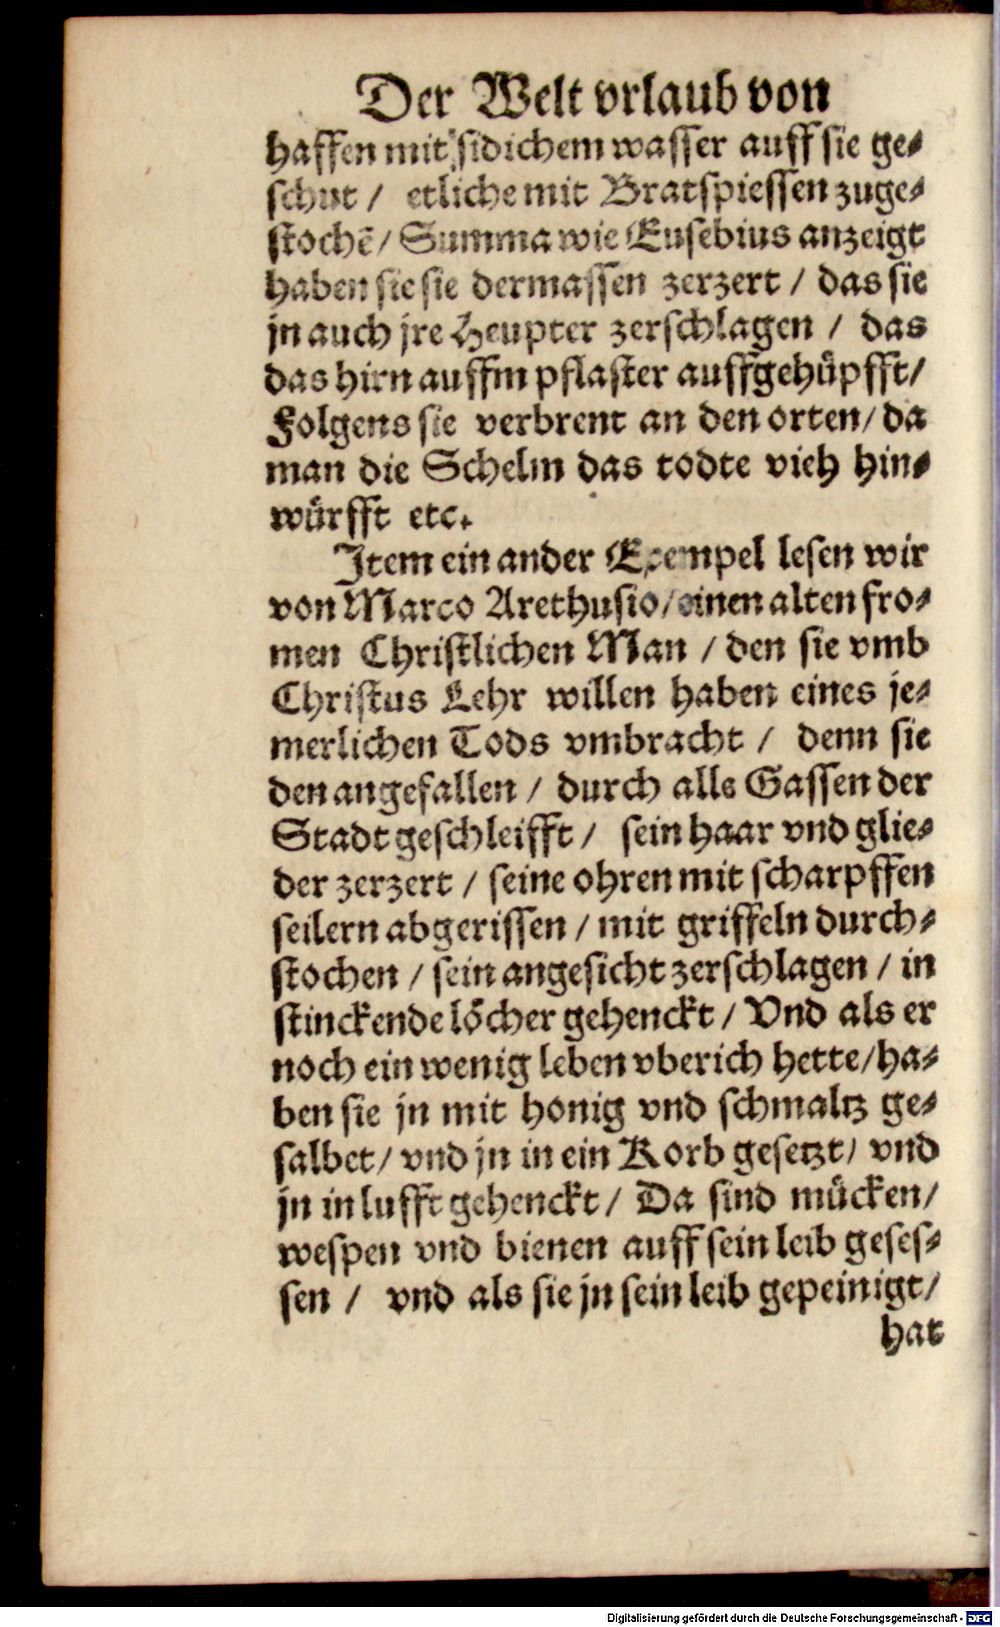 Der Welt vrlaub von
haffen mit sidichem wasser auff sie ge⸗
schut / etliche mit Bratspiessen zuge⸗
stochē / Summa wie Eusebius anzeigt
haben sie sie dermassen zerzert / das sie
jn auch jre Heupter zerschlagen / das
das hirn auffm pflaster auffgehüpfft /
Folgens sie verbrent an den orten / da
man die Schelm das todte vieh hin⸗
würfft etc.
Item ein ander Exempel lesen wir
von Marco Arethusio / einen alten fro⸗
men Christlichen Man / den sie vmb
Christus Lehr willen haben eines je⸗
merlichen Tods vmbracht / denn sie
den angefallen / durch alle Gassen der
Stadt geschleifft / sein haar vnd glie⸗
der zerzert / seine ohren mit scharpffen
seilern abgerissen / mit griffeln durch⸗
stochen / sein angesicht zerschlagen / in
stinckende löcher gehenckt / Vnd als er
noch ein wenig leben vberich hette / ha⸗
ben sie jn mit honig vnd schmaltz ge⸗
salbet / vnd jn in ein Korb gesetzt / vnd
jn in lufft gehenckt / Da sind mücken /
wespen vnd bienen auff sein leib geses⸗
sen / vnd als sie jn sein leib gepeinigt /
hat
Digitalisierung gefördert durch die Deutsche Forschungsgemeinschaft - DFG